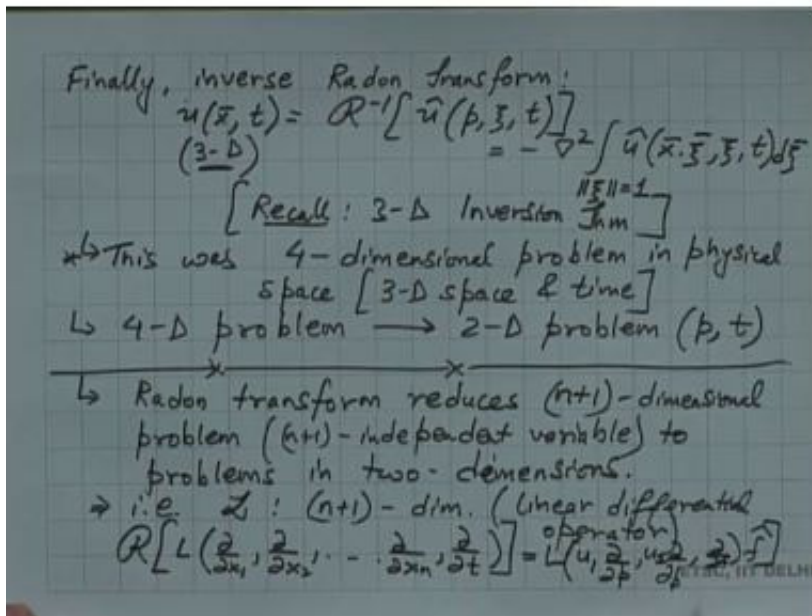 Finally, inverse Radon Transform:
u(x̄, t) = R⁻¹[û(p, ξ, t)]
(3-D) = - ∇² ∫ û(x̄·ξ̄, ξ̄, t)dξ̄
||ξ||=1
[Recall: 3-D Inversion Thm]
*↳ This was 4-dimensional problem in physical
space [3-D space & time]
↳ 4-D problem → 2-D problem (p, t)
↳ Radon transform reduces (n+1)-dimensional
problem ((n+1)-independent variable) to
problems in two-demensions.
⇒ i.e. L : (n+1)-dim. (Linear differential
operator)
R[L(∂/∂x₁, ∂/∂x₂, ... ∂/∂xₙ, ∂/∂t)] = L(u₁ ∂/∂p, u₂ ∂/∂p, ∂/∂t) f̂]
ETSC, IIT DELHI